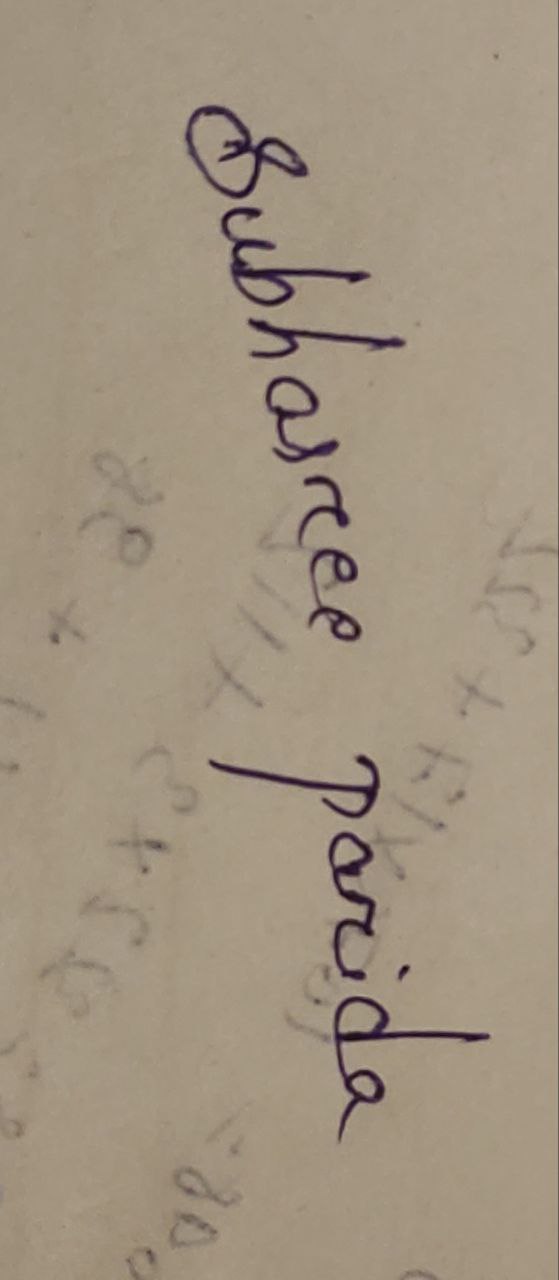 Subhasree parida